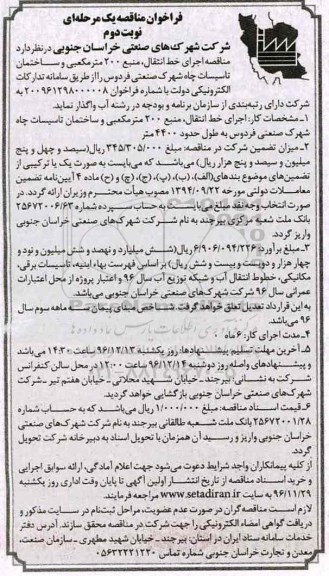 فراخوان مناقصه یک مرحله‌ای
نوبت دوم
شرکت شهرک‌های صنعتی خراسان جنوبی در نظر دارد
مناقصه اجرای خط انتقال، منبع ۲۰۰ مترمکعبی و ساختمان
تاسیسات چاه شهرک صنعتی فردوس را از طریق سامانه تدارکات
الکترونیکی دولت با شماره فراخوان ۲۰۰۹۶۱۲۹۸۰۰۰۰۰۸ به
شرکت دارای رتبه‌بندی از سازمان برنامه و بودجه در رشته آب واگذار نماید.
۱ـ مشخصات کار: اجرای خط انتقال، منبع ۲۰۰ مترمکعبی و ساختمان تاسیسات چاه
شهرک صنعتی فردوس به طول حدود ۴۴۰۰ متر
۲ـ میزان تضمین شرکت در مناقصه: مبلغ ۳۴۵/۳۰۵/۰۰۰ ریال(سیصد و چهل و پنج
میلیون و سیصد و پنج هزار ریال) می‌باشد که می‌بایست به صورت یک یا ترکیبی از
تضمین‌های موضوع بندهای(الف)، (ب)، (پ)، (ج)، (چ) و (ح) ماده ۴ آیین‌نامه تضمین
معاملات دولتی مورخه ۱۳۹۴/۰۹/۲۲ مصوب هیأت محترم وزیران ارائه گردد. در
صورت انتخاب وجه نقد مبلغ می‌بایست به حساب سپرده شماره ۲۵۶۷۲۰۰۶/۶۳
بانک ملت شعبه مرکزی بیرجند به نام شرکت شهرک‌های صنعتی خراسان جنوبی
واریز گردد.
۳ـ مبلغ برآورد: ۶/۹۰۶/۰۹۴/۲۲۶ ریال(شش میلیارد و نهصد و شش میلیون و نود و
چهار هزار و دویست و بیست و شش ریال) بر اساس فهرست بهاء ابنیه، تاسیسات برقی،
مکانیکی، خطوط انتقال آب و شبکه توزیع آب سال ۹۶ و اعتبار پروژه از محل اعتبارات
عمرانی سال ۹۶ شرکت شهرک‌های صنعتی خراسان جنوبی می‌باشد.
به این قرارداد تعدیل تعلق خواهد گرفت. شاخص مبنای پیمان سه ماهه سوم سال
۹۶ می‌باشد.
۴ـ مدت اجرای کار: ۶ ماه
۵ـ آخرین مهلت تسلیم پیشنهادها: روز یکشنبه ۹۶/۱۲/۱۳ ساعت ۱۴:۳۰ می‌باشد
و پیشنهادهای واصله روز دوشنبه ۹۶/۱۲/۱۴ ساعت ۱۲:۰۰ در محل سالن کنفرانس
شرکت به نشانی: بیرجند ـ خیابان شهید محلاتی ـ خیابان هفتم تیر ـ شرکت
شهرک‌های صنعتی خراسان جنوبی بازگشایی خواهد گردید.
۶ـ قیمت اسناد مناقصه: مبلغ ۱/۰۰۰/۰۰۰ ریال می‌باشد که به حساب شماره
۲۵۶۷۲۰۰۱/۲۸ بانک ملت شعبه طالقانی بیرجند به نام شرکت شهرک‌های صنعتی
خراسان جنوبی واریز و رسید آن همزمان با تحویل اسناد به دبیرخانه شرکت تحویل
گردد.
از کلیه پیمانکاران واجد شرایط دعوت می‌شود جهت اعلام آمادگی، ارائه سوابق اجرایی
و خرید اسناد مناقصه از تاریخ انتشار اولین آگهی تا پایان وقت اداری روز یکشنبه
۹۶/۱۱/۲۹ به سایت www.setadiran.ir مراجعه فرمایند.
لازم است مناقصه‌گران در صورت عدم عضویت، مراحل ثبت‌نام در سایت مذکور و
دریافت گواهی امضاء الکترونیکی را جهت شرکت در مناقصه محقق سازند. آدرس دفتر
خدمات سامانه ستاد ایران در استان: بیرجند ـ خیابان شهید مطهری ـ سازمان صنعت،
معدن و تجارت خراسان جنوبی شماره تماس ۰۵۶۳۲۲۲۱۲۲۰